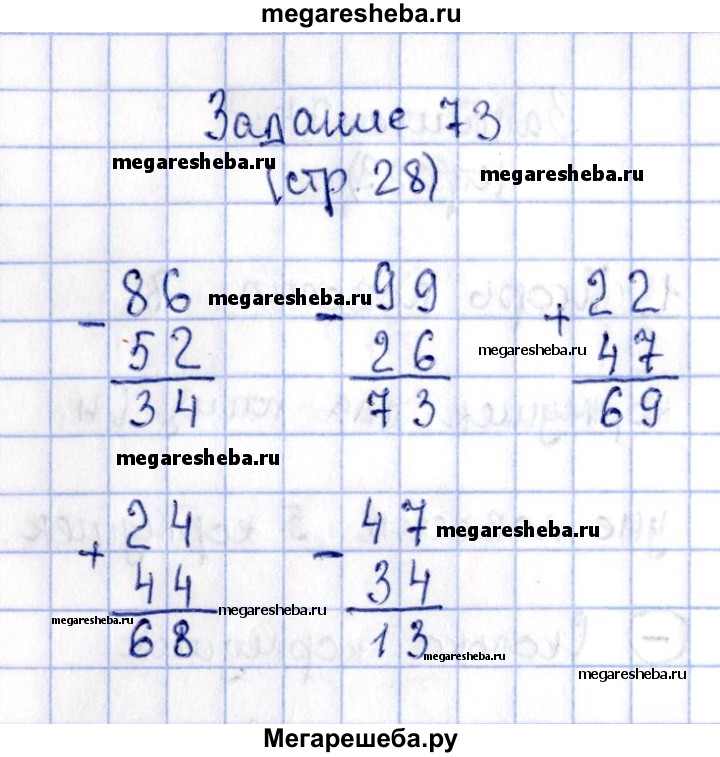 megaresheba.ru
Задание 73
megaresheba.ru
(стр. 28)
megaresheba.ru
- 86 megaresheba.ru - 99 + 22
52 26 megaresheba.ru 47
34 73 69
megaresheba.ru
+ 24 - 47 megaresheba.ru
44 34
megaresheba.ru megaresheba.ru
68 13 megaresheba.ru
megaresheba.ru
Мегарешеба.ру